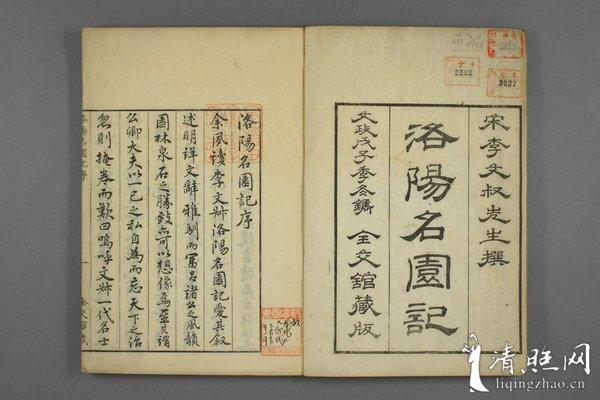 宋李文叔先生撰
洛陽名園記
文政戊子季冬鐫 全交館藏版
洛陽名園記序
余夙讀李文叔洛陽名園記愛其叙
述明詳文辭雅馴而富呂諸公之風韻
園林泉石之勝致亦可以想像焉並其謂
公卿大夫以一己之私自為而忘天下之治
忽則掩卷而歎曰嗚呼文叔一代名士
3322
3037
清照网
liqingzhao.cn